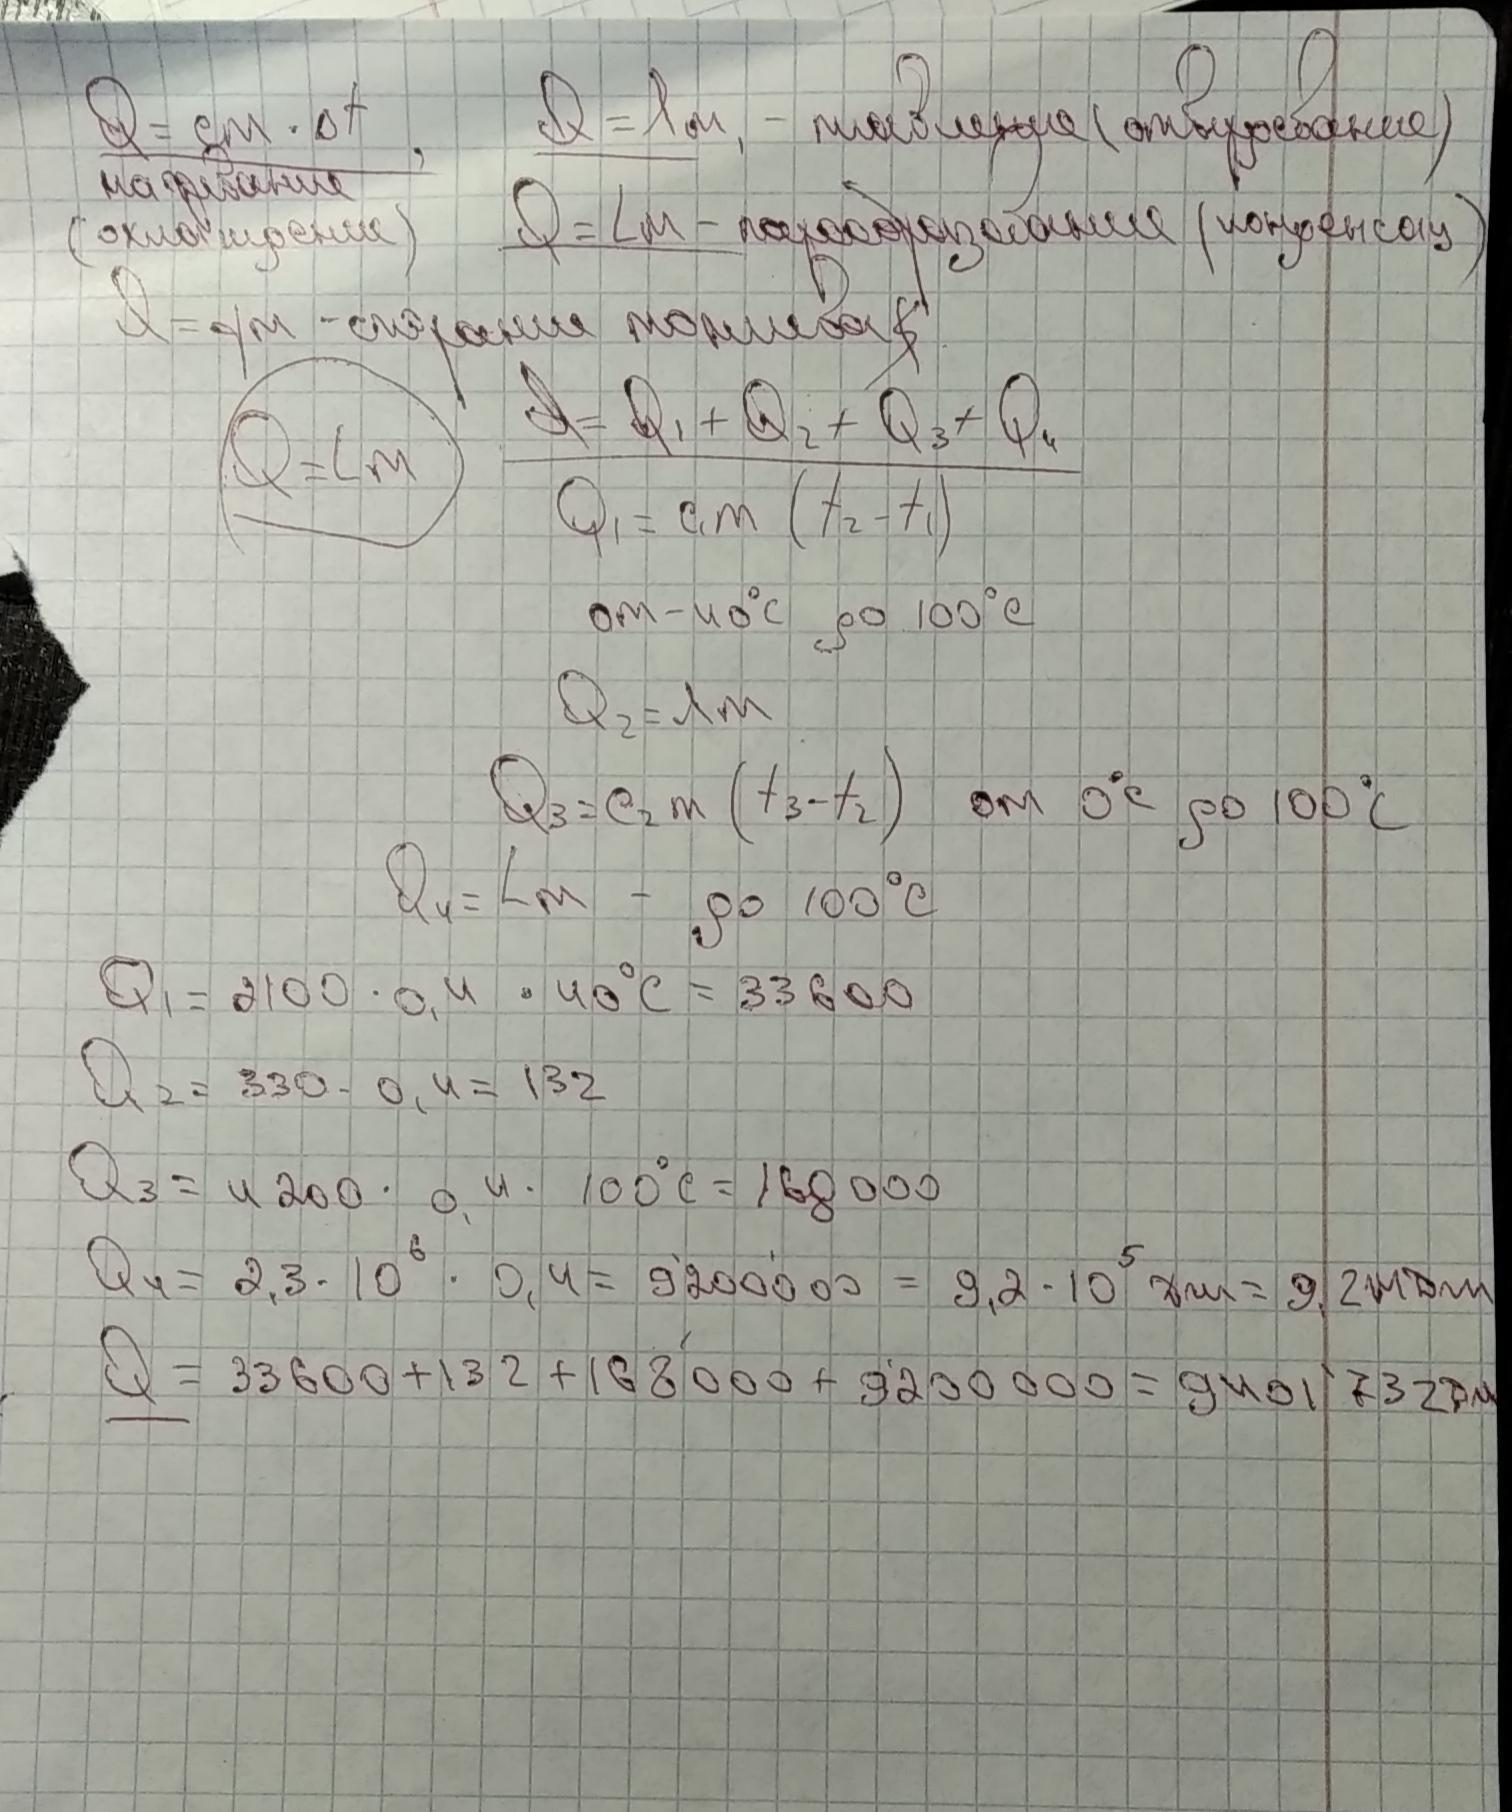 Q = cm · Δt, Q = λm, - плавление (отвердевание)
нагревание
(охлаждение) Q = Lm - парообразование (конденсац)
Q = qm - сгорание топлива
Q = Q₁ + Q₂ + Q₃ + Q₄
Q = Lm
Q₁ = c₁m (t₂ - t₁)
от -40°C до 100°C
Q₂ = λm
Q₃ = c₂m (t₃ - t₂) от 0°C до 100°C
Q₄ = Lm - до 100°C
Q₁ = 2100 · 0,4 · 40°C = 33600
Q₂ = 330 · 0,4 = 132
Q₃ = 4200 · 0,4 · 100°C = 168000
Q₄ = 2,3 · 10⁶ · 0,4 = 9200000 = 9,2 · 10⁵ Дж = 9,2 МДж
Q = 33600 + 132 + 168000 + 9200000 = 9401732 Дж